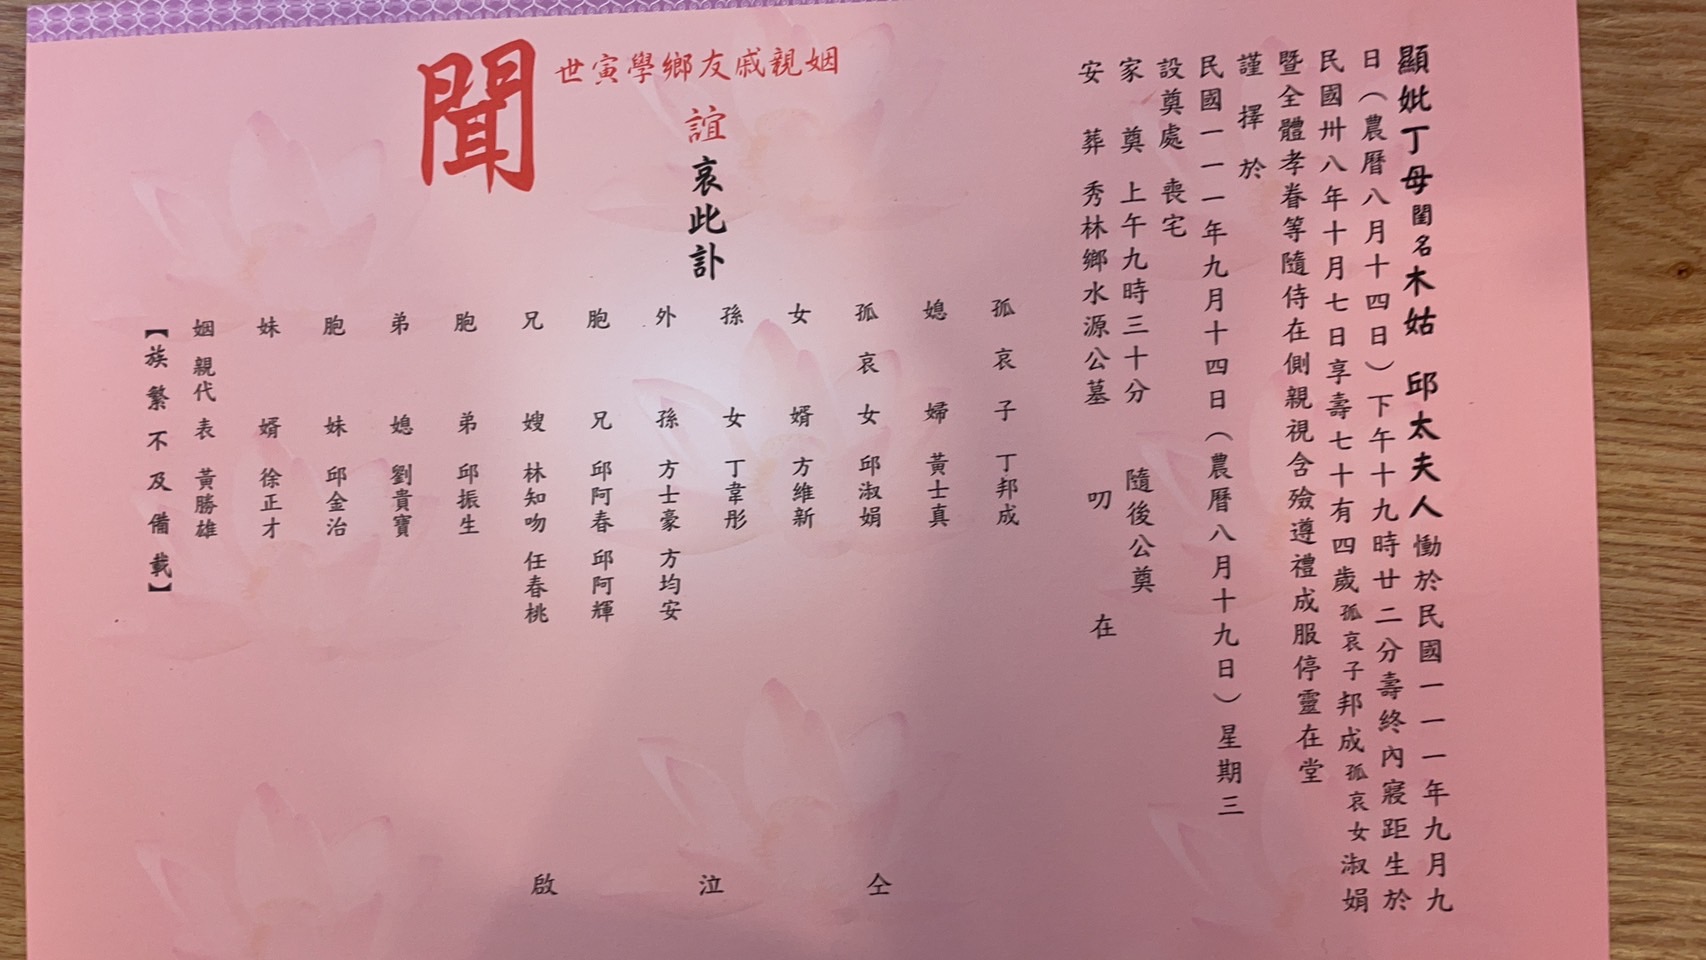 顯妣丁母閨名木姑 邱太夫人慟於民國一一一年九月九
日（農曆八月十四日）下午十九時廿二分壽終內寢距生於
民國卅八年十月七日享壽七十有四歲孤哀子邦成孤哀女淑娟
暨全體孝眷等隨侍在側親視含殮遵禮成服停靈在堂
謹擇於
民國一一一年九月十四日（農曆八月十九日）星期三
設奠處 喪宅
家奠 上午九時三十分 隨後公奠
安葬 秀林鄉水源公墓 叨在
姻親戚友鄉學寅世
誼哀此訃
聞
孤哀子 丁邦成
媳婦 黃士真
孤哀女 邱淑娟
女婿 方維新
孫女 丁韋彤
外孫 方士豪 方均安
胞兄 邱阿春 邱阿輝
兄嫂 林知吻 任春桃
胞弟 邱振生
弟媳 劉貴寶
胞妹 邱金治
妹婿 徐正才
姻親代表 黃勝雄
【族繁不及備載】
仝泣啟